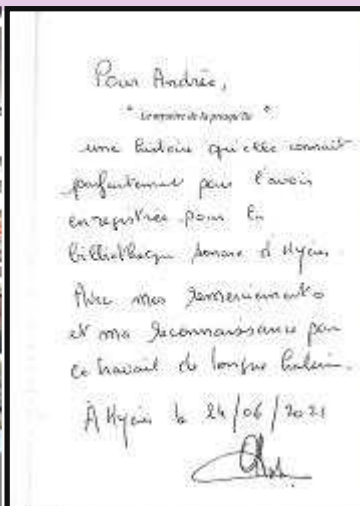 Pour Andrée,
" Le mystère de la presqu'île "
une histoire qu'elle connait
parfaitement pour l'avoir
enregistrée pour la
bibliothèque sonore d'Hyères.
Avec mes remerciements
et ma reconnaissance pour
ce travail de longue haleine.
À Hyères le 24/06/2021